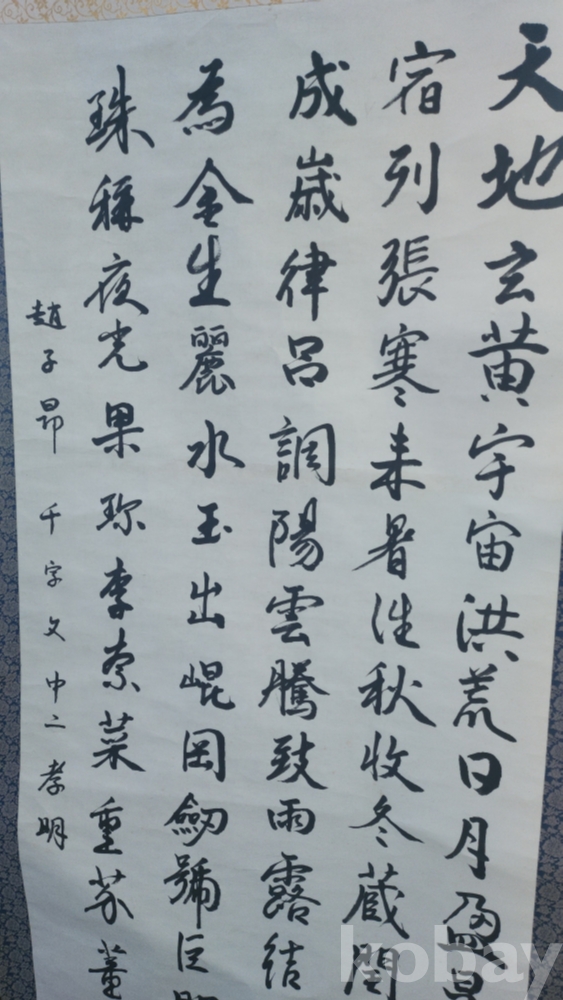 天地玄黃宇宙洪荒日月盈昃
宿列張寒來暑往秋收冬蔵閏
成歲律呂調陽雲騰致雨露結
為金生麗水玉出崐岡劒號巨闕
珠稱夜光果珎李柰菜重芥薑
趙子昂 千字文 中二 孝明
kobay